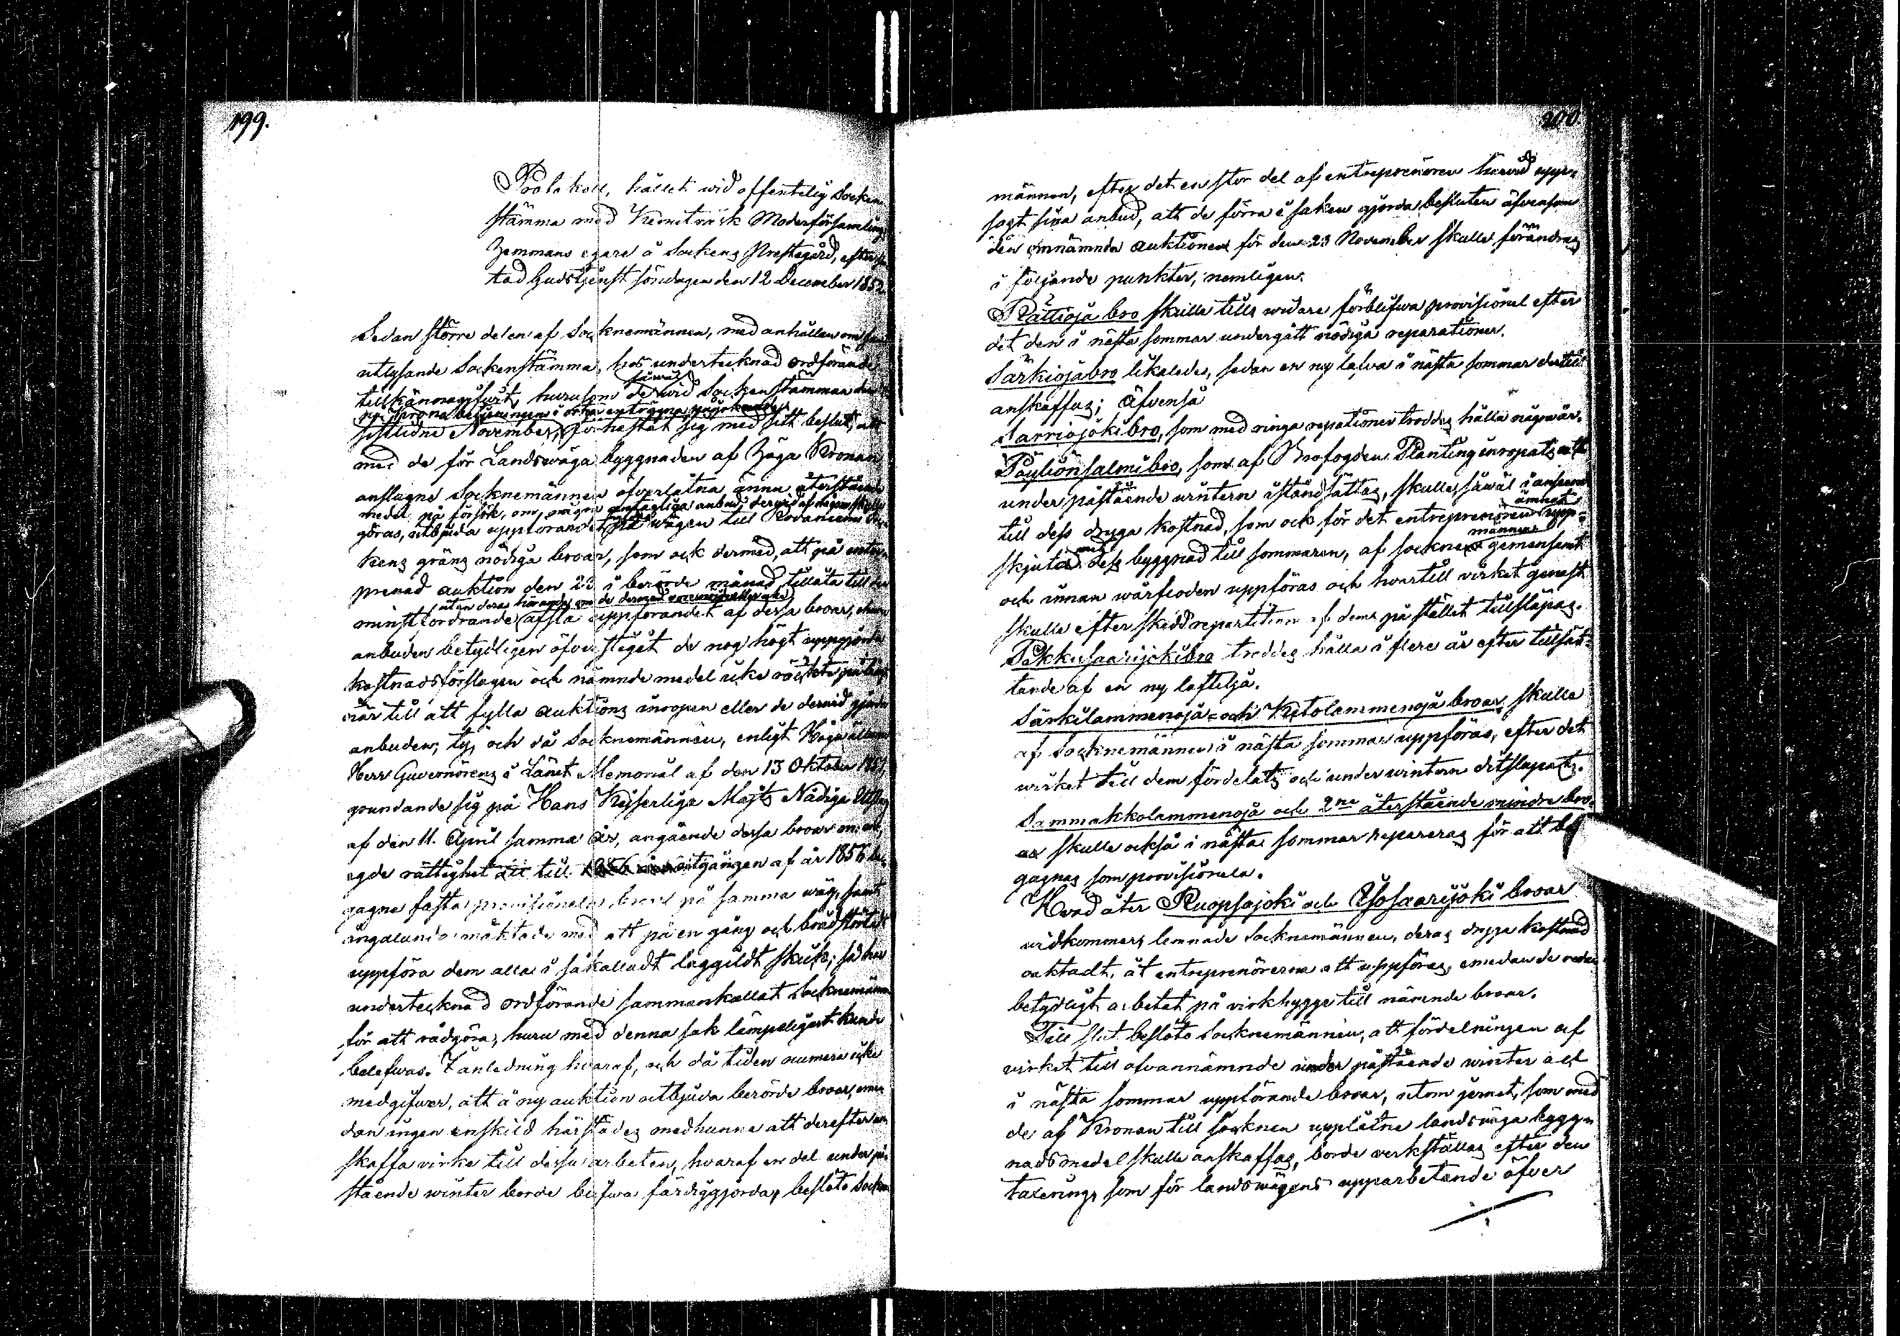 199.
Protokoll, hållet vid offentelig Socken
stämma med Kemiträsk Moderförsamlings
Hemmans egare å Sockens Prestegård, efter
tad Gudstjenst söndagen den 12 December 185
Sedan större delen af Socknemännen, med anhållan om
utlysande Sockenstämma, hos undertecknad ordförande
tillkännagifvit, hurusom de wid Sockenstämman den
sistlidne November, förhastat sig med sitt beslut, att
med de för Landswäga byggnaden af Höga Kronan
anslagne Socknemännen öfverlåtna ännu återstående
medel på försök, om några antagliga anbud dervid af någon skulle
göras, utbjuda uppförandet på wägen till Rovaniemi Soc
kens gräns nödiga broar, som ock dermed, att på entre-
prenad auktion den 23 i berörde månad tillåta till den
minst fordrande afslå uppförandet af dessa broar, ehuru
anbuden betydligen öfverstiget de nog högt uppgjorda
kostnadsförslagen och nämnde medel icke räckte på långt
när till att fylla auktions inropen eller de dervid gjorda
anbuden; ty, och då Socknemännen, enligt Höga
Herr Guvernörens i Länet Memorial af den 13 Oktober 1851,
grundande sig på Hans Kejserliga Majts Nådiga
af den 11. April samma år, angående dessa broar
egde rättighet till utgången af år 1856 be-
gagna fasta provisionela broar på samma wäg, samt
ingalunda mäktade med att på en gång och brådstörtadt
uppföra dem alla i såkalladt laggildt skick; så har
undertecknad ordförande sammankallat Socknemännen
för att rådgöra, huru med denna sak lämpeligast kunde
belefwas. I anledning hvaraf, och då tiden numera icke
medgifver, att å ny auktion utbjuda berörde broar, emedan
dan ingen enskild härstädes medhunne att derefter an-
skaffa virke till dessa arbeten, hvaraf en del under på-
stående winter borde blifwa färdiggjorda, beslöto Socken
200.
männen, efter det en stor del af entreprenören härvid upp-
sagt sina anbud, att de förra i saken gjorda besluten äfvensom
den omnämnda auktionen för den 23 November skulle förändras
i följande punkter, nemligen:
Rättiojä bro skulle tills widare förblifwa provisionel efter
det den i nästa sommar undergått nödiga reparationer.
Särkiojäbro likaledes, sedan en ny lafva i nästa sommar dertill
anskaffas; äfvenså
Sarriojokibro, som med ringa repationer troddes hålla någwar.
Pöyliönsalmibro, som af Krofogden Planting inropats att
under påstående wintern iståndsättas, skulle, såwäl i anseende
till dess dryga kostnad, som ock för det entreprenören ämnat upp-
skjuta med dess byggnad till sommaren, af socknemännen gemensamt
och innan wårfloden uppföras och hvartill virket genast
skulle efter skeddrepartition af dem på stället tillsläpas.
Pekkusaarijokibro troddes hålla i flere år efter tillsät-
tande af en ny loftiljä.
Särkilammenojä- och Kutolammenojä broar skulle
af Socknemännen i nästa sommar uppföras, efter det
wirket till dem fördelats och under wintern ditsläpats.
Sammakkolammenojä och 2ne återstående mindre bro-
ar skulle också i nästa sommar repareras för att be-
gagnas som provisionela.
Hvad åter Ruopsajoki och Ysosaarijoki broar
widkommer, lemnade Socknemännen, deras dryga kostnad
oaktadt, åt entreprenörerna att uppföras, emedan de redan
betydligt arbetat på virkhygge till nämnde broar.
Till slut beslöto Socknemännen, att fördelningen af
virket till ofvannämnde under påstående winter och
i nästa sommar uppförande broar, utom jernet, som med
de af Kronan till socknen upplåtne landswäga bygg-
nadsmedel skulle anskaffas, borde verkställas efter den
taxering, som för landswägens upparbetande öfver